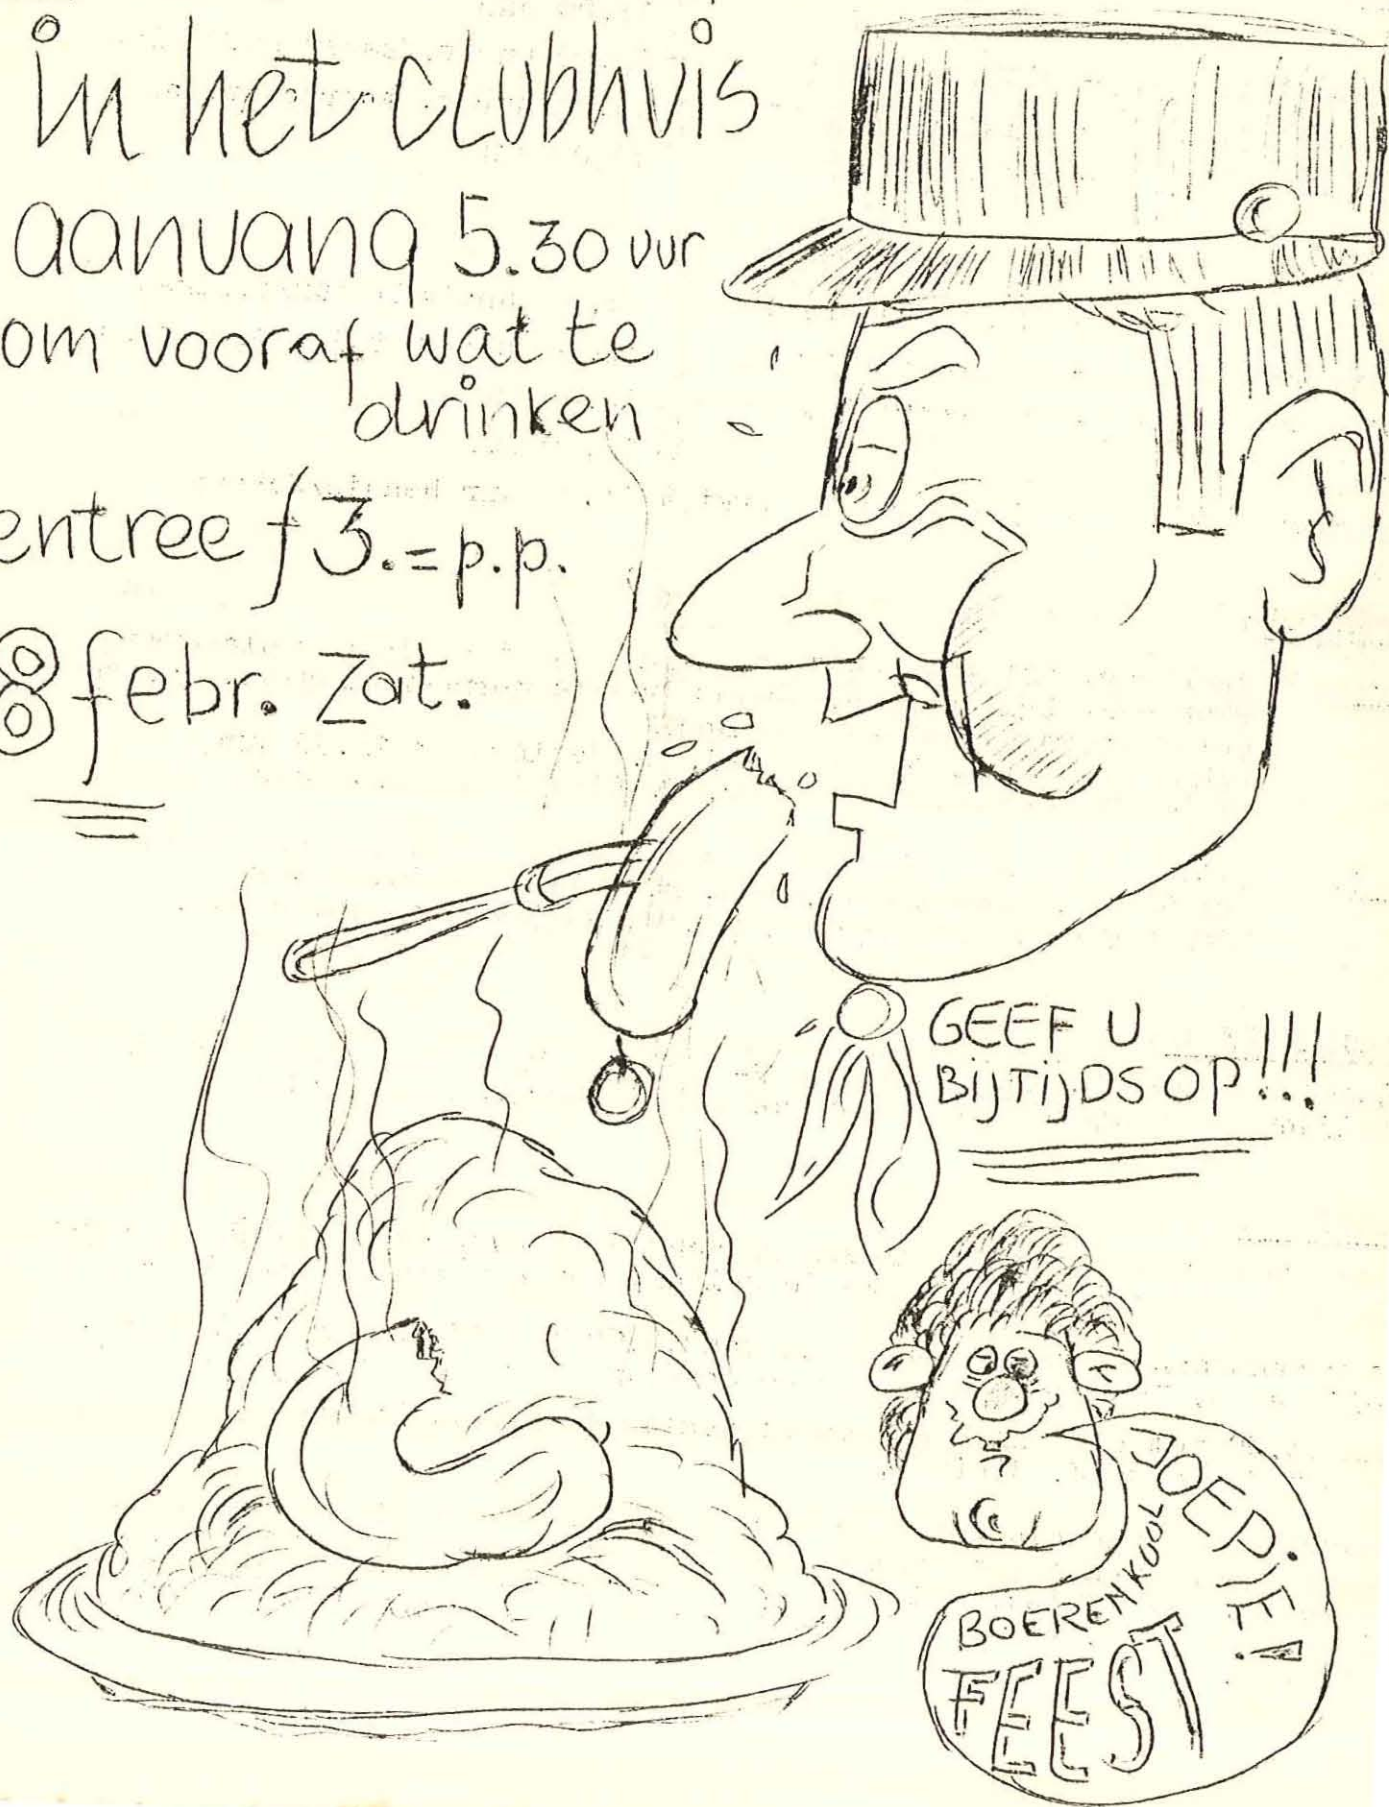 in het clubhuis
aanvang 5.30 uur
om vooraf wat te
drinken
entree f 3.= p.p.
8 febr. zat.
GEEF U
BIJTIJDS OP!!!
JOEPIE!
BOERENKOOL
FEEST